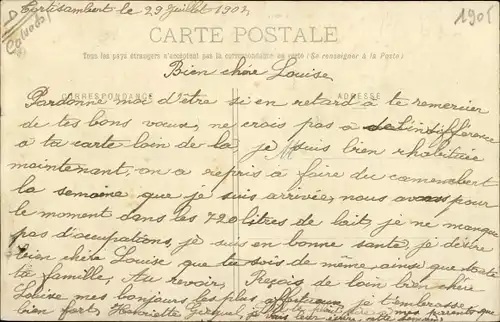 Fortisambert le 29 Juillet 1904
1905
Calvados
CARTE POSTALE
Tous les pays étrangers n'acceptent pas la correspondance au verso (Se renseigner à la Poste)
Bien chère Louise
CORRESPONDANCE
ADRESSE
Pardonne moi d'être si en retard à te remercier
de tes bons vœux, ne crois pas à de l'indifférence
à ta carte loin de la, je suis bien rhabituée
maintenant, on a repris à faire du camembert
la semaine que je suis arrivée, nous avons pour
le moment dans les 720 litres de lait, je ne manque
pas d'occupations, je suis en bonne santé, je désire
bien chère Louise que tu sois de même, ainsi que toute
ta famille, Au revoir, Reçois de loin bien chère
Louise mes bonjours les plus affectueux, je t'embrasse
bien fort, Henriette je
mes parents que
je vais leur écrire cette semaine